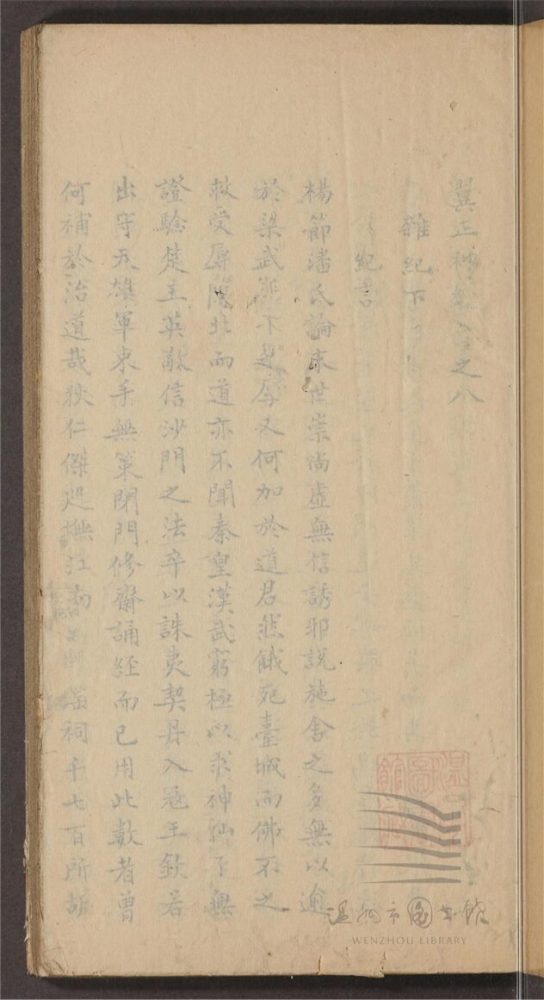 翼正神之八
雜紀下
紀言
楊節潘氏論末世崇尚虛無信誘邪說施舍之多無以逾
於梁武不是辱又何加於道君然餓死臺城而佛不之
救受辱北而道亦不聞秦皇漢武窮極以求神仙了無
證驗楚王英敬信沙門之法卒以誅夷契丹入寇王欽若
出守天雄軍束手無策閉門修齋誦經而已用此數者曾
何補於治道哉狄仁傑巡撫江南祠千七百所
温州市圖書館
WENZHOU LIBRARY